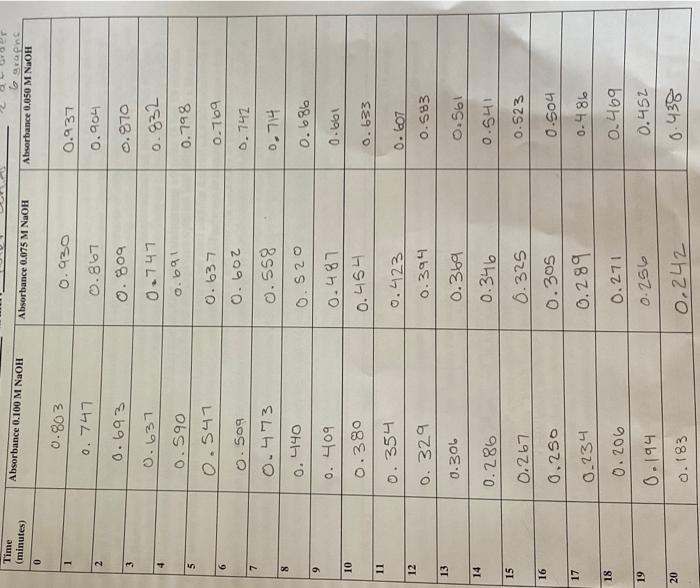 order
6 graphs
Time (minutes) Absorbance 0.100 M NaOH Absorbance 0.075 M NaOH Absorbance 0.050 M NaOH
0 0.803 0.930 0.937
1 0.747 0.867 0.904
2 0.693 0.809 0.870
3 0.637 0.747 0.832
4 0.590 0.691 0.798
5 0.547 0.637 0.769
6 0.509 0.602 0.742
7 0.473 0.558 0.714
8 0.440 0.520 0.686
9 0.409 0.487 0.661
10 0.380 0.454 0.633
11 0.354 0.423 0.607
12 0.329 0.394 0.583
13 0.306 0.369 0.561
14 0.286 0.346 0.541
15 0.267 0.325 0.523
16 0.250 0.305 0.504
17 0.234 0.289 0.486
18 0.206 0.271 0.469
19 0.194 0.256 0.452
20 0.183 0.242 0.438